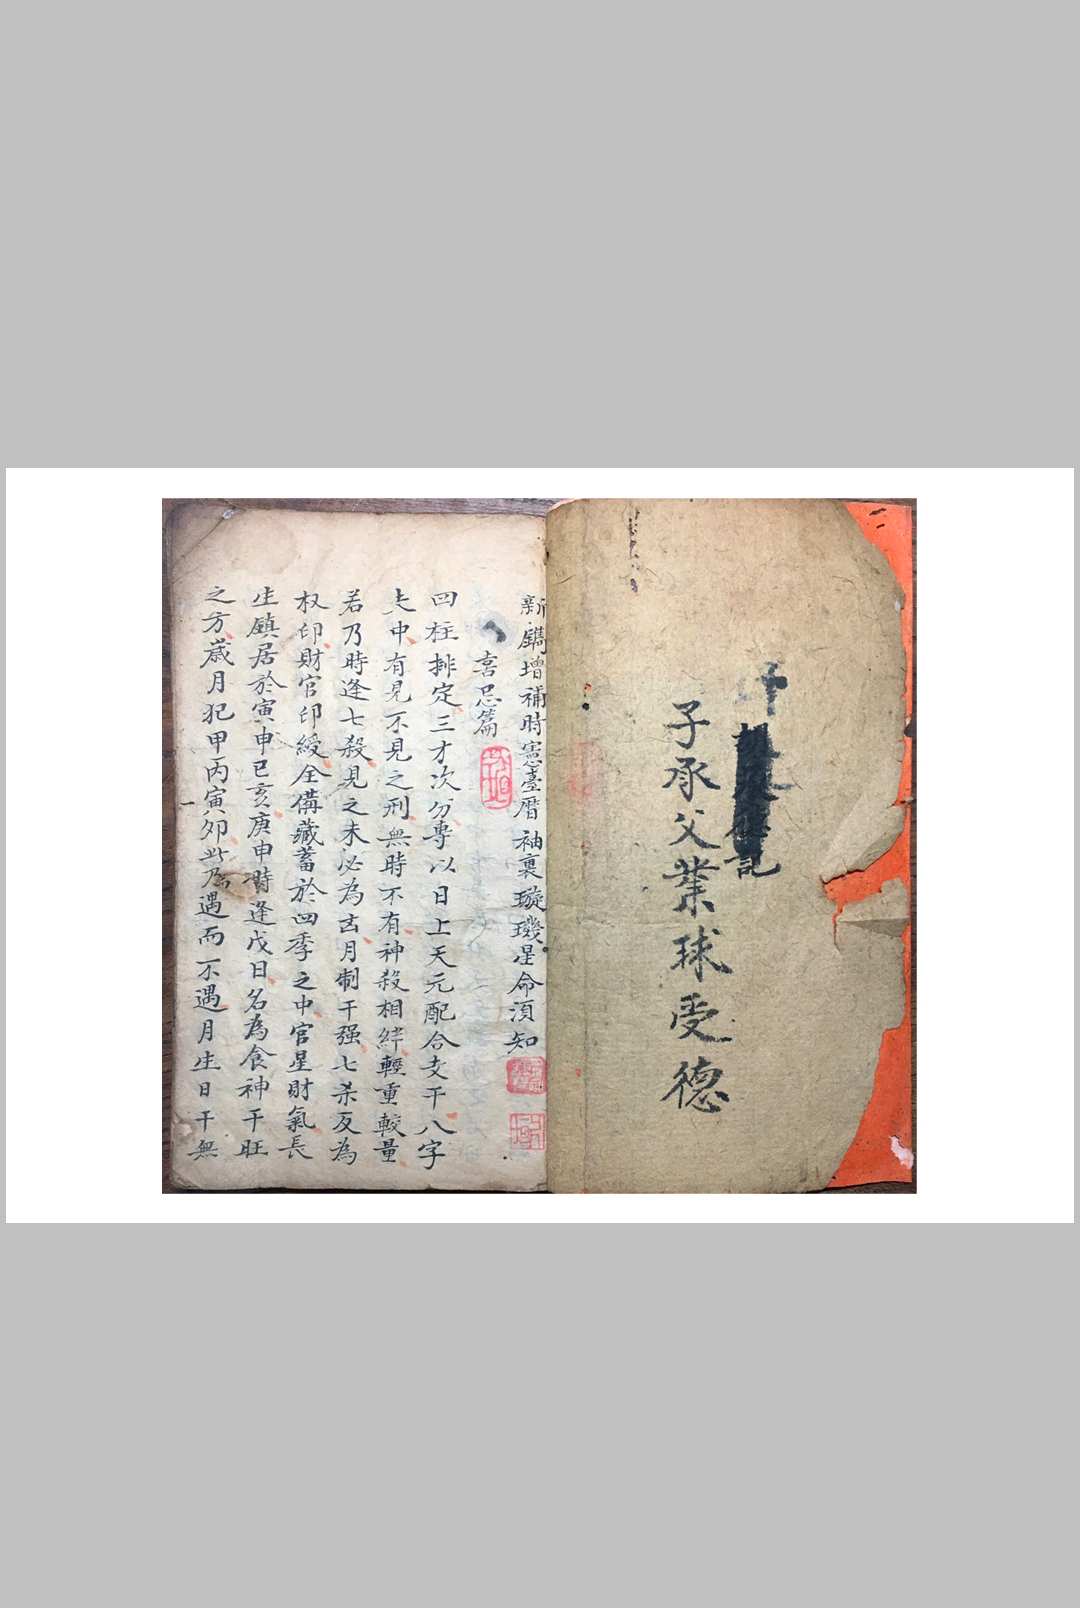 記
子承父業球受德
新鐫增補時憲臺曆袖裏璇璣星命須知
喜忌篇
四柱排定三才次分專以日上天元配合支干八字
夫中有見不見之刑無時不有神殺相絆輕重較量
若乃時逢七殺見之未必為凶月制干强七杀反為
权印財官印綬全俻藏蓄於四季之中官星財氣長
生鎮居於寅申巳亥庚申時逢戊日名為食神干旺
之方歲月犯甲丙寅卯此乃遇而不遇月生日干無